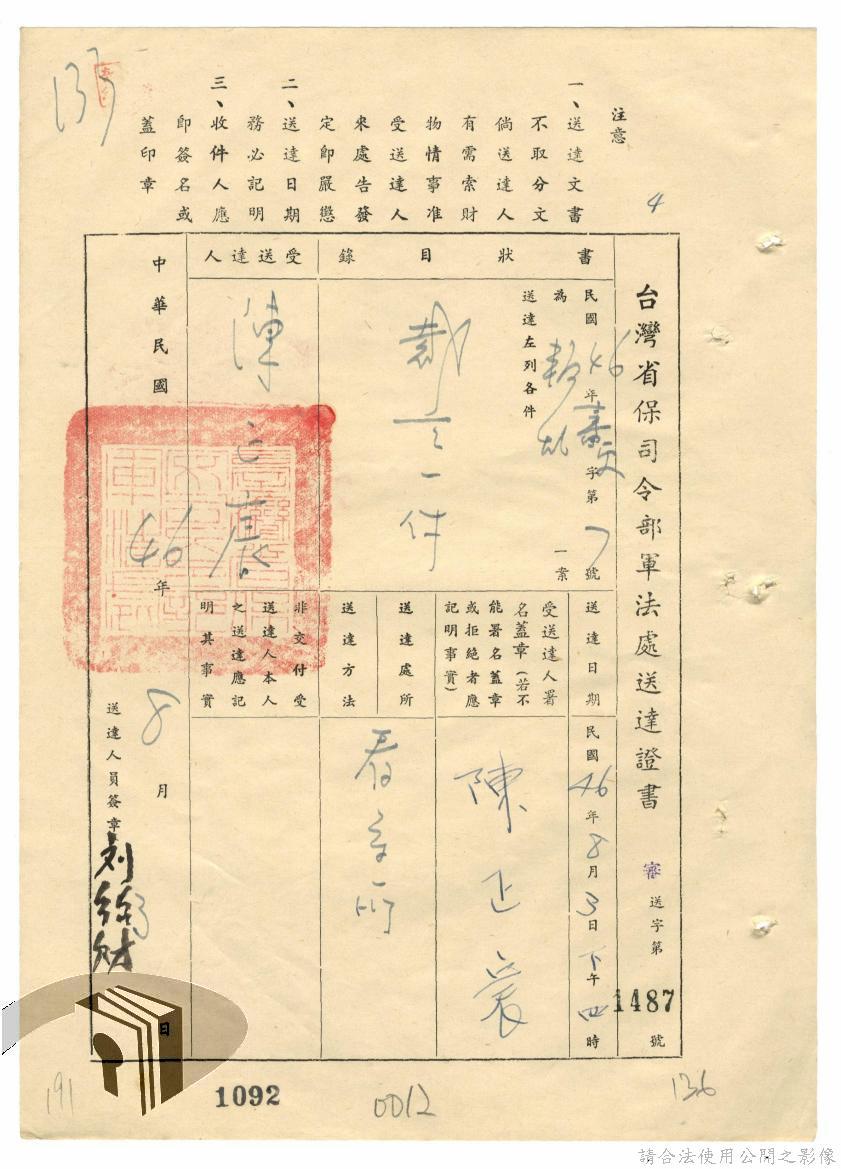 注意
一、送達文書
不取分文
倘送達人
有需索財
物情事准
受送達人
來處告發
定即嚴懲
二、送達日期
務必記明
三、收件人應
即簽名或
蓋印章
4
133
台灣省保司令部軍法處送達證書
審送字第1487號
書狀目錄
民國46年審 字第7號
為叛亂一案
送達左列各件
裁定一件
受送達人
陳正宸
送達日期
民國46年8月3日下午四時
受送達人署
名蓋章(若不
能署名蓋章
或拒絕者應
記明事實)
陳正宸
送達處所
看守所
送達方法
非交付受
送達人本人
之送達應記
明其事實
中華民國46年8月3日
送達人員簽章
1092
0012
136
191
請合法使用公開之影像